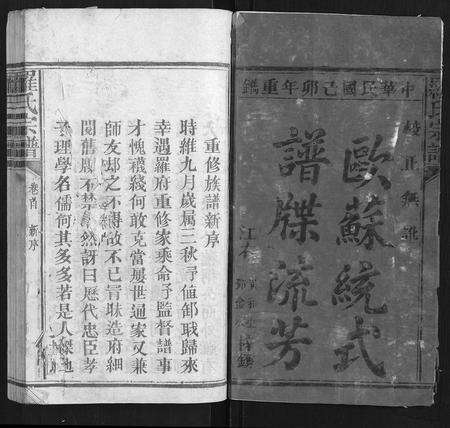 中華民國己卯年重鐫
校正無訛
歐蘇統式
譜牒流芳
江右
羅氏宗譜
重修族譜新序
時維九月歲属三秋予值郵戢歸來
幸遇羅府重修家乘命予監督譜事
才愧襪綫何敢克當屢世通家又兼
師友却之不得故不已冒昧造府細
閱舊牒不禁然訝曰歷代忠臣孝
子理學名儒何其多多若是人傑地
羅氏宗譜
卷首
新序